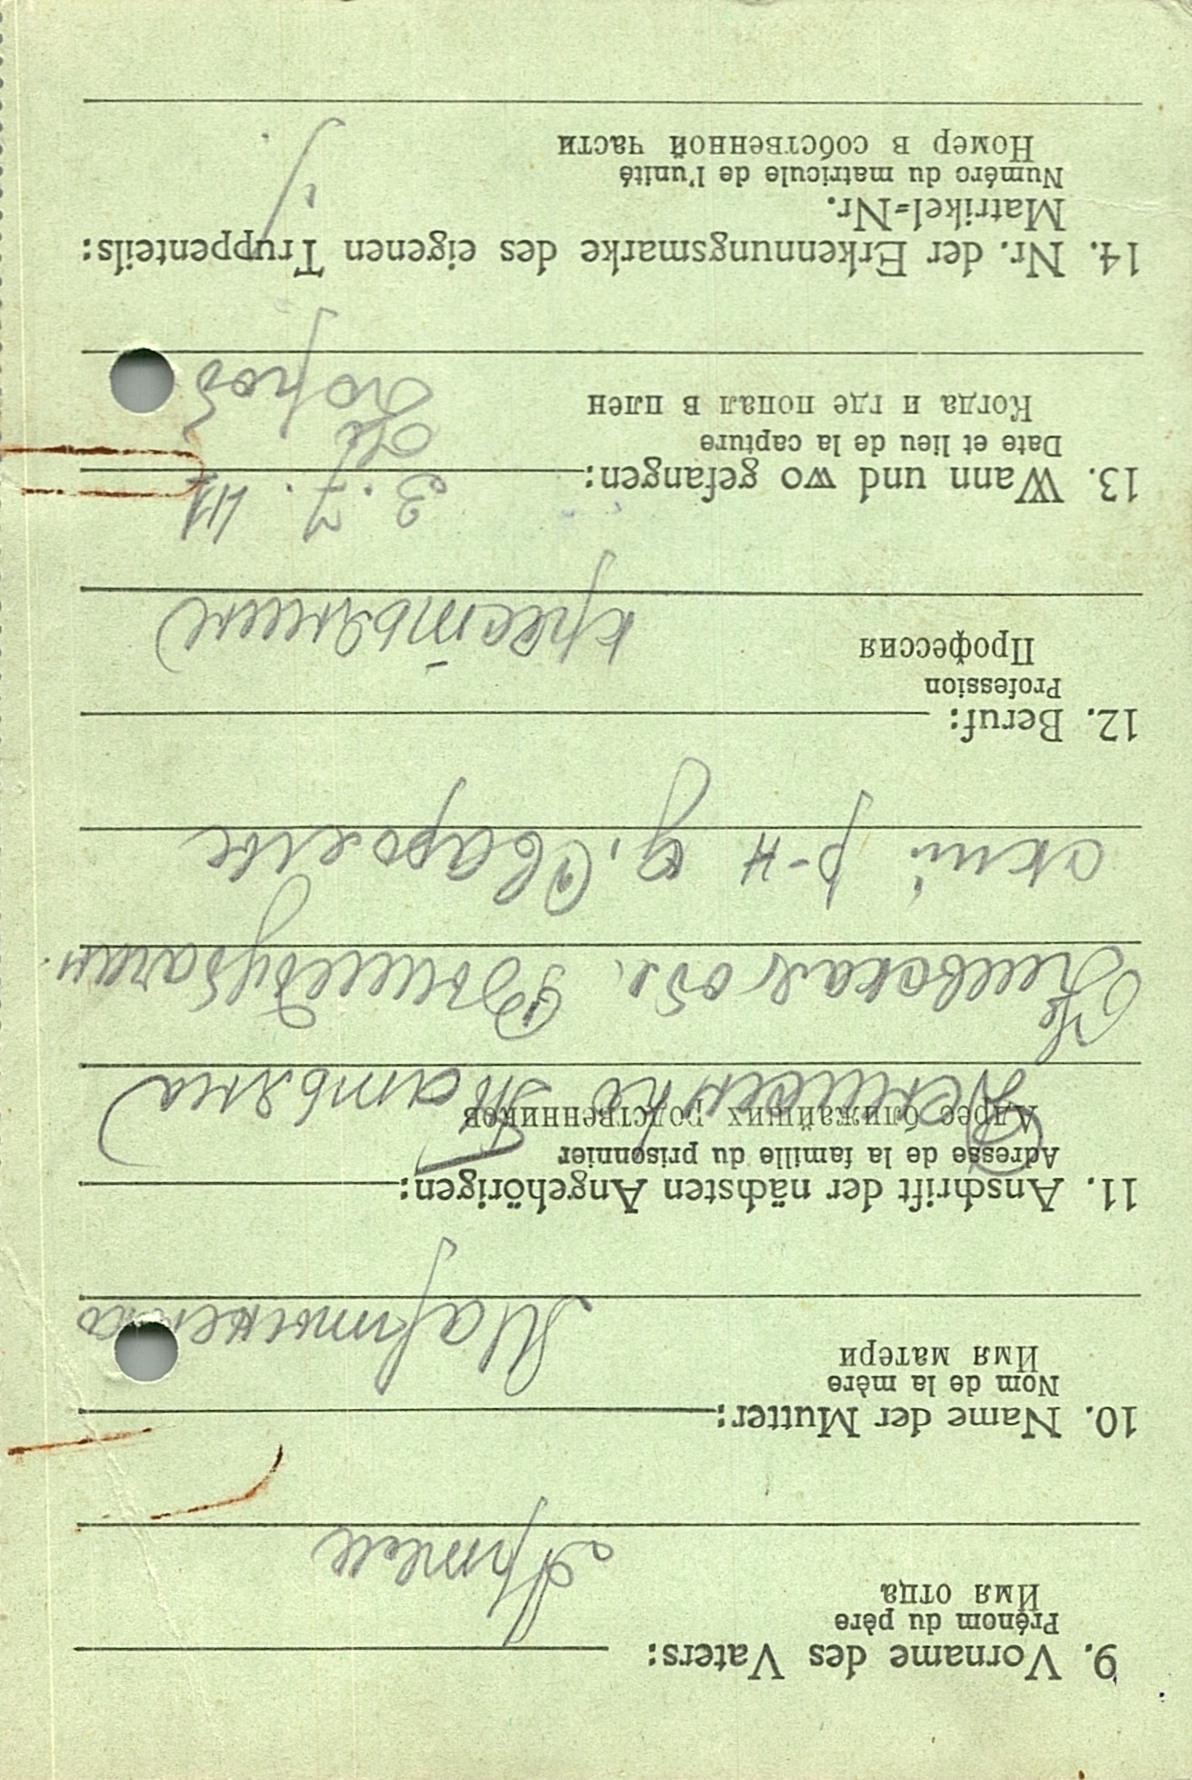 9. Vorname des Vaters:
Prénom du père
Имя отца
Артем
10. Name der Mutter:
Nom de la mère
Имя матери
Мартыненко
11. Anschrift der nächsten Angehörigen:
Adresse de la famille du prisonnier
Адрес ближайших родственников
Татьяна
Киевская обл. Вышедубечан
ский р-н д. Сваромье
12. Beruf:
Profession
Профессия
крестьянин
13. Wann und wo gefangen:
3. 7. 41
Date et lieu de la capture
Когда и где попал в плен
14. Nr. der Erkennungsmarke des eigenen Truppenteils:
Matrikel=Nr.
Numéro du matricule de l'unité
Номер в собственной части